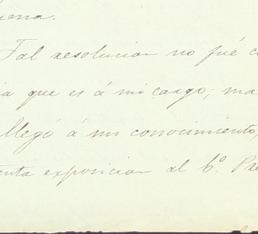 Tal resolucion no fué c
ia que es á mi cargo; ma
llegó á mi conocimiento,
enta exposicion al 6.º Pre